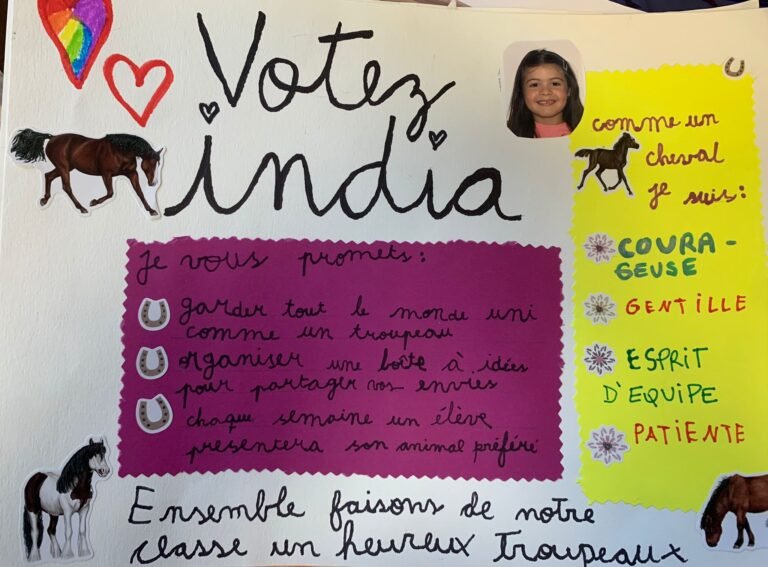 Votez
india
Je vous promets :
garder tout le monde uni
comme un troupeau
organiser une boîte à idées
pour partager vos envies
chaque semaine un élève
présentera son animal préféré
comme un
cheval
je suis :
COURA -
GEUSE
GENTILLE
ESPRIT
D'EQUIPE
PATIENTE
Ensemble faisons de notre
classe un heureux Troupeaux